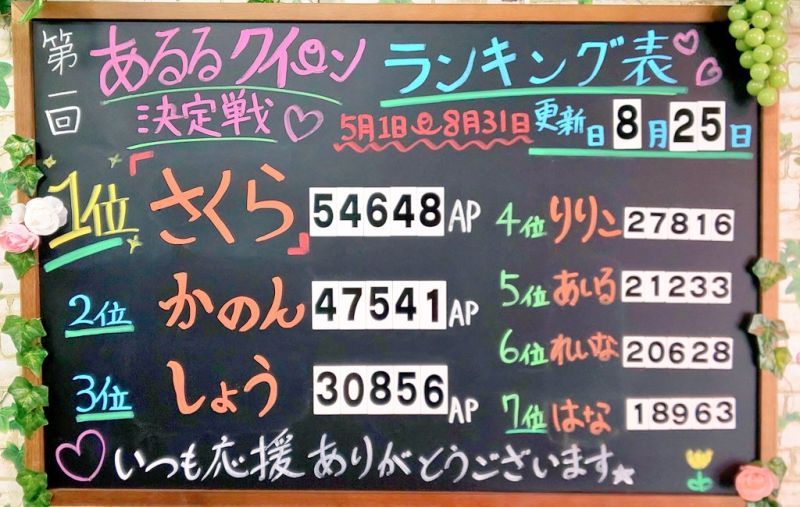 第一回
あるるクイーン ランキング表
決定戦 5月1日〜8月31日 更新日 8月25日
1位 『さくら』 54648 AP
2位 かのん 47541 AP
3位 しょう 30856 AP
4位 りりこ 27816
5位 あいる 21233
6位 れいな 20628
7位 はな 18963
いつも応援ありがとうございます